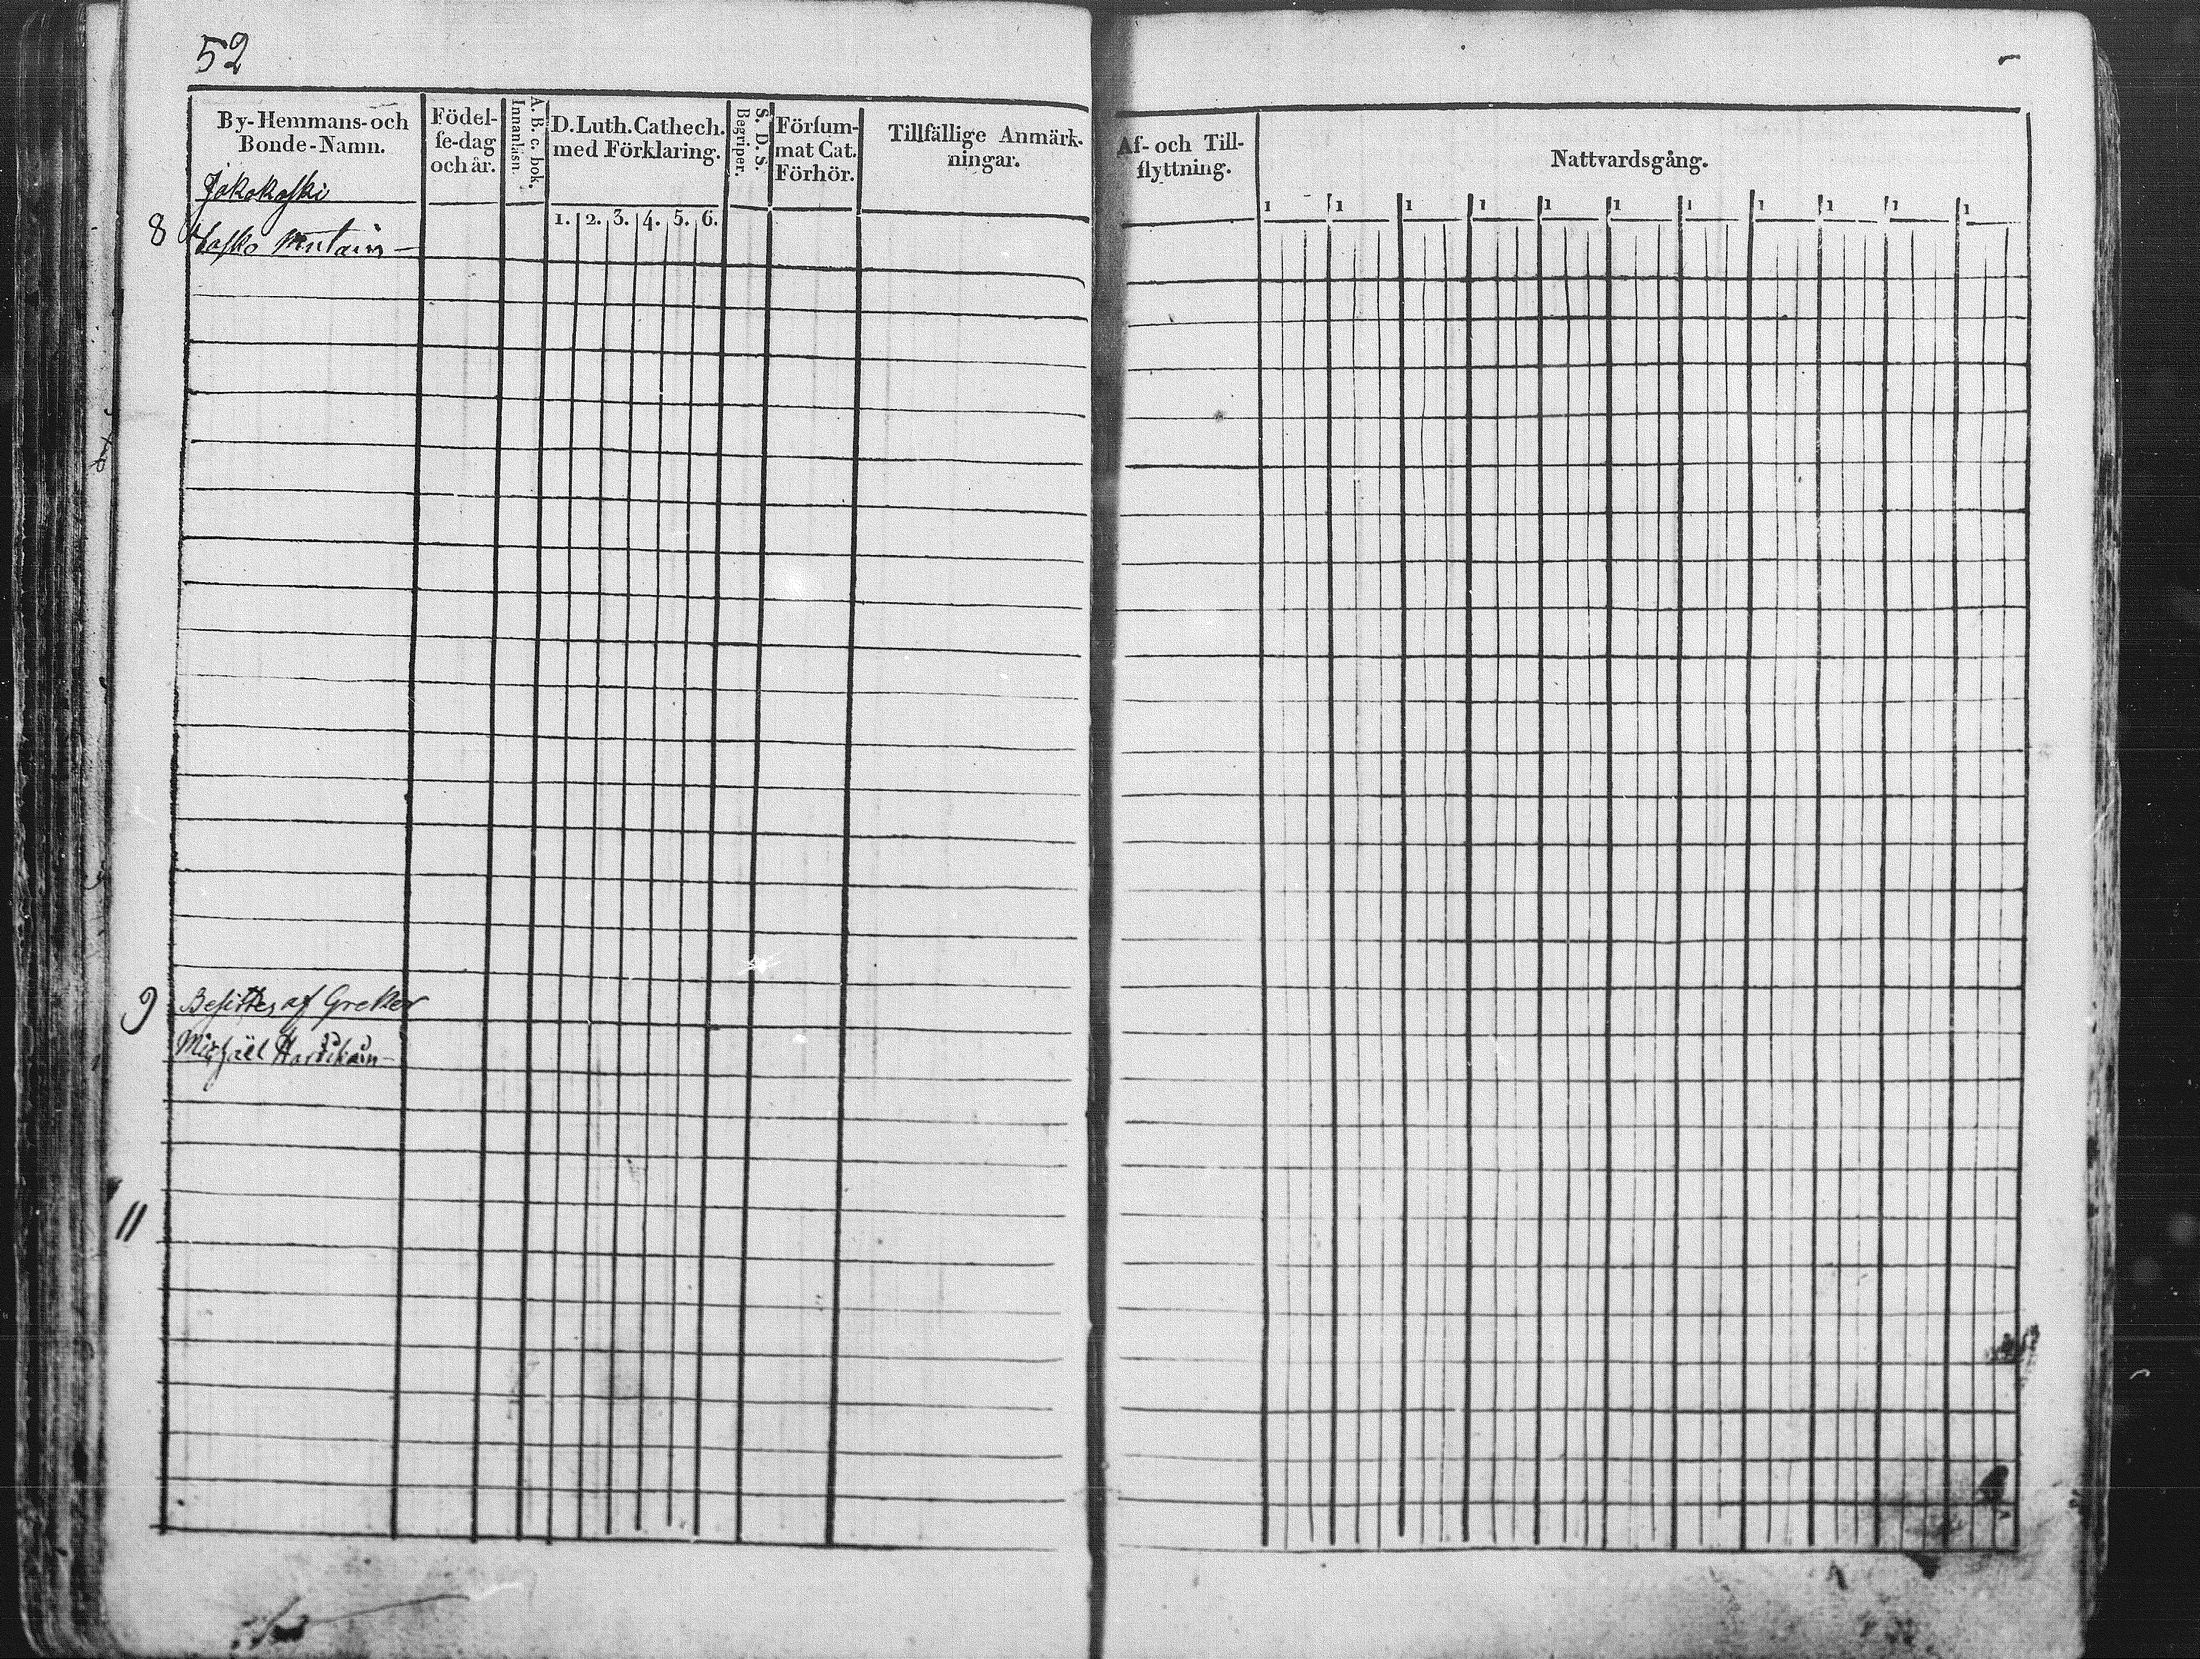 52
By-Hemmans-och
Bonde-Namn.
Födel-
ſe-dag
och år.
A. B. c. bok.
Innanläsn.
D. Luth. Cathech.
med Förklaring.
S. D. S.
Begriper.
Förſum-
mat Cat.
Förhör.
Tillfällige Anmärk-
ningar.
Af- och Till-
flyttning.
Nattvardsgång.
Jakokoſki
1. 2. 3. 4. 5. 6.
1 1 1 1 1 1 1 1 1 1 1
8
9 Beſittes af Greker
Michaël
11